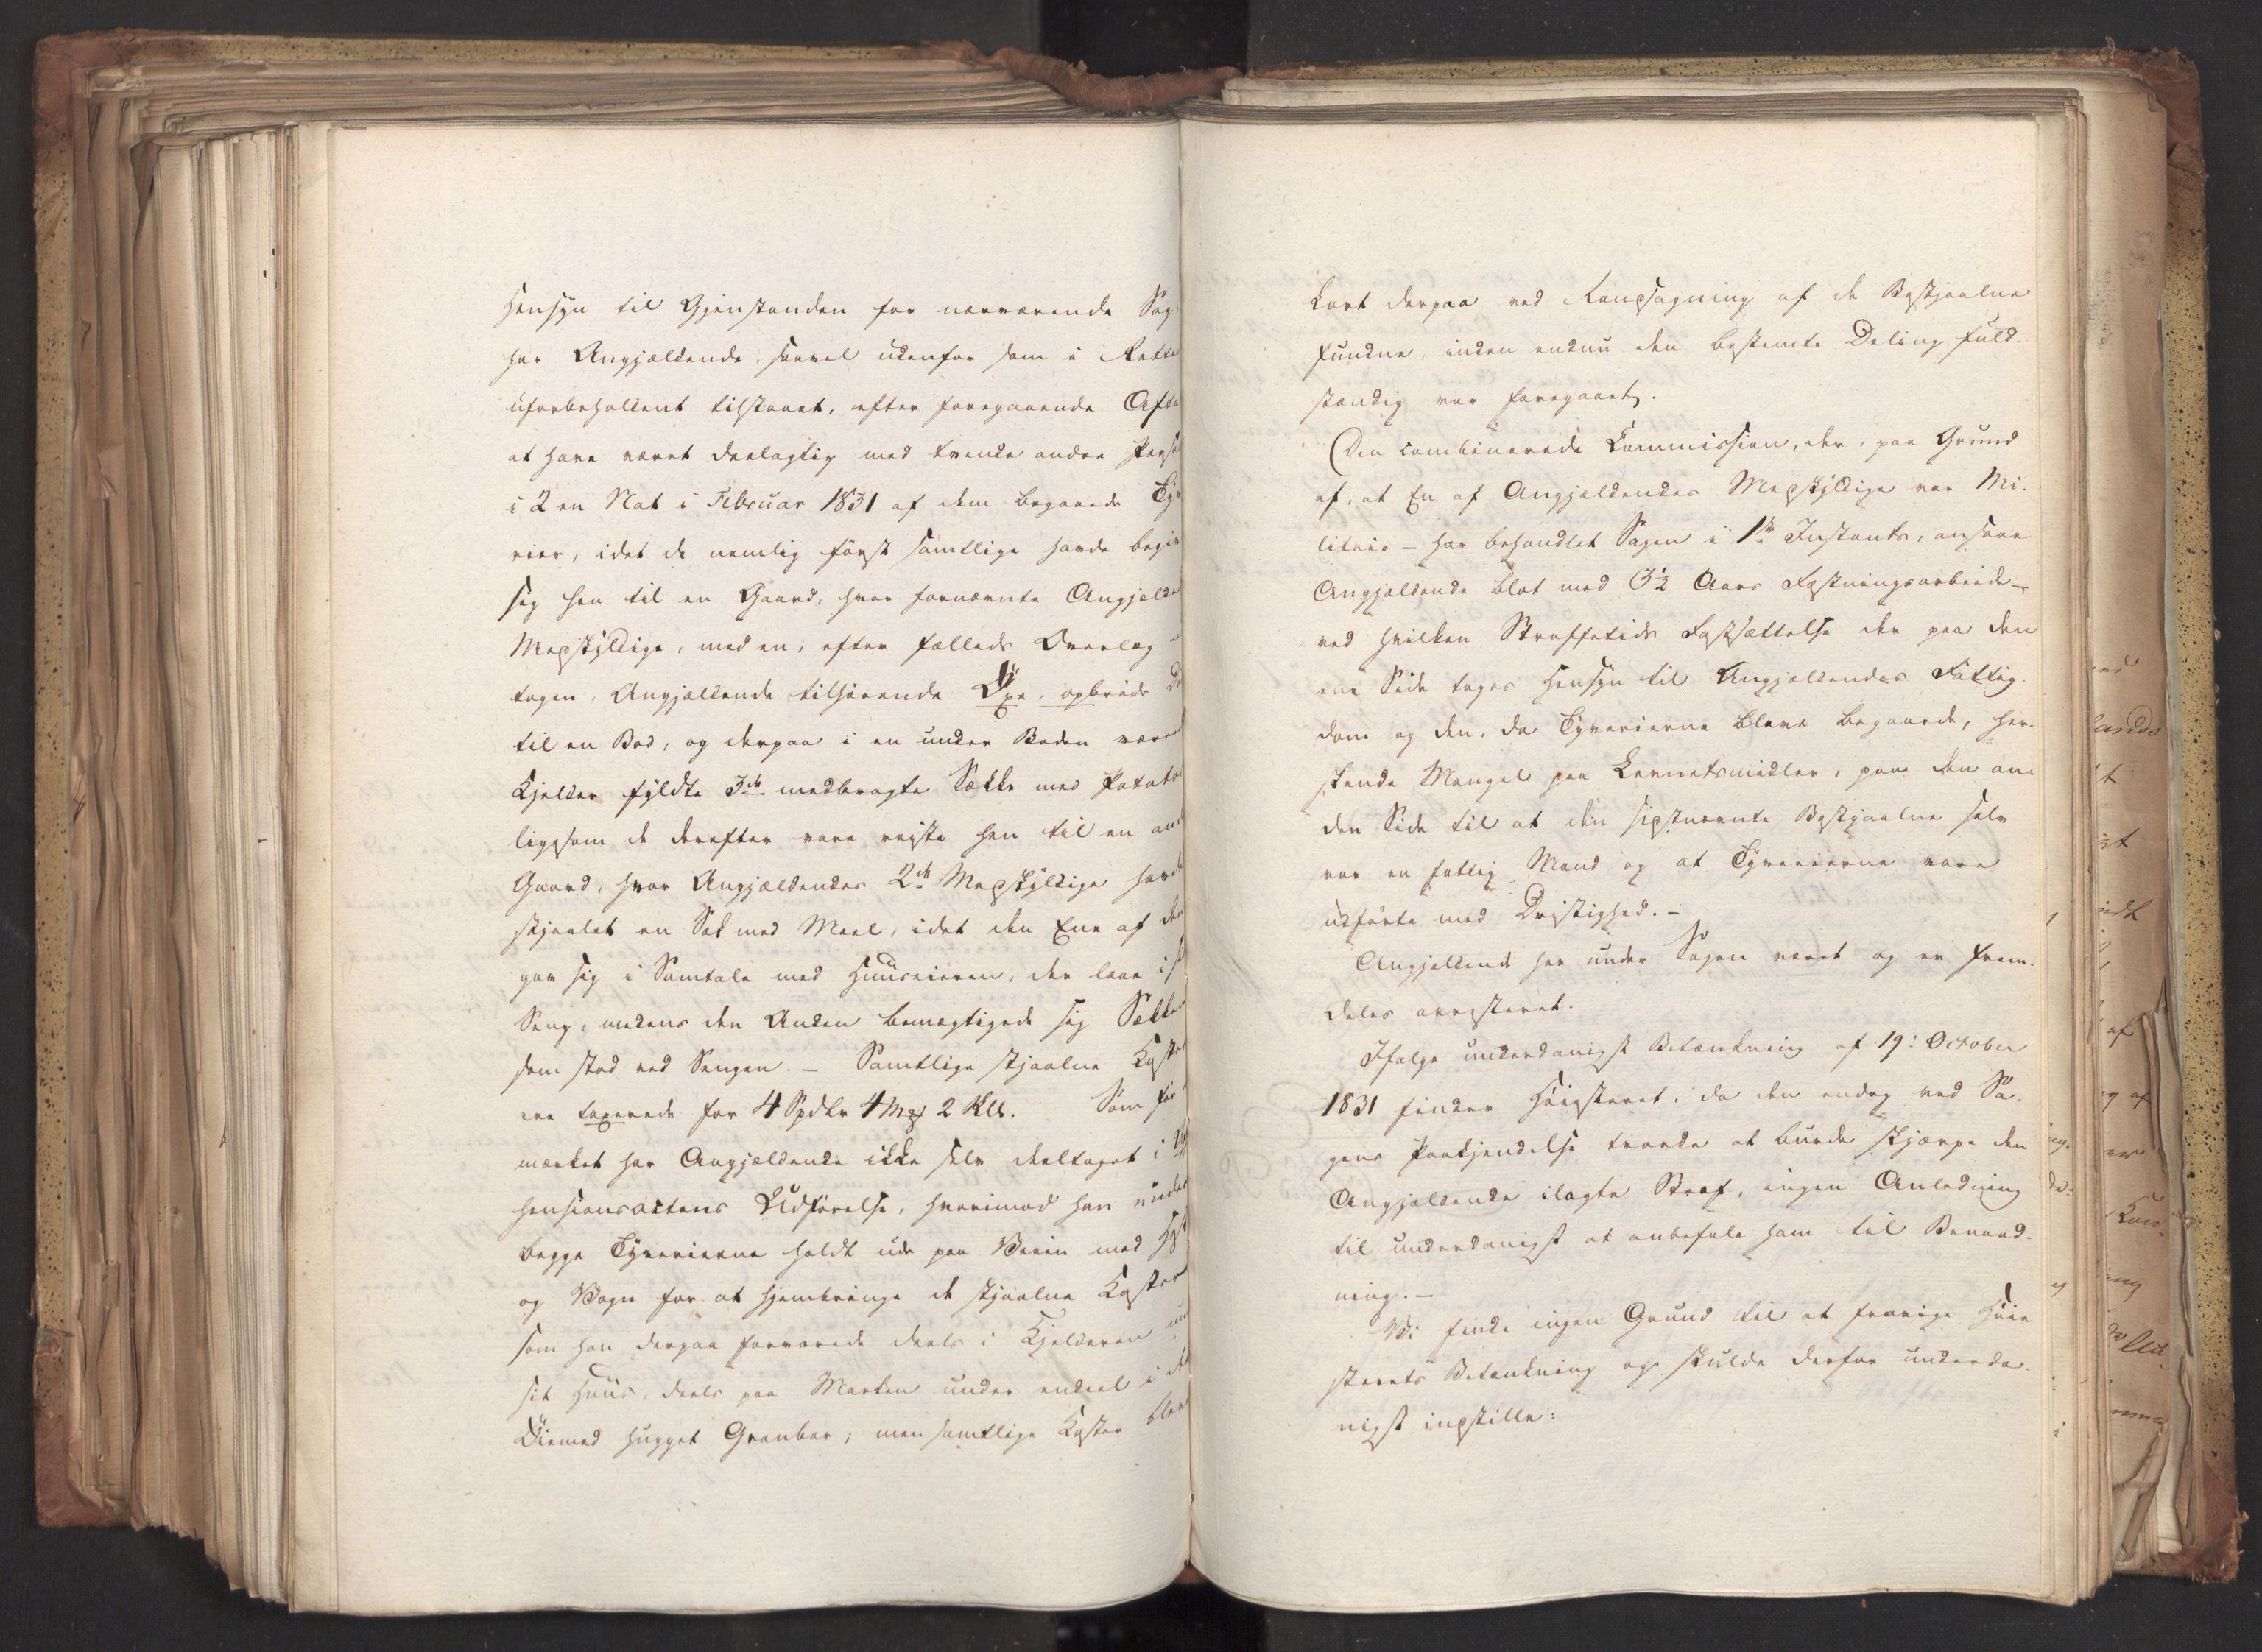 Hensyn til Gjenstanden for nærværende Sag
har Angjældende, saavel udenfor som i Rette
uforbeholdent tilstaaet, efter foregaaende Afta
at have været deelagtig med tvende andre Perso
i 2 en Nat i Februar 1831 af dem begaaede Tyve
rier, idet de nemlig først samtlige havde begiv
sig hen til en Gaard, hvor fornævnte Angjælde
Medskyldige, med en, efter fælleds Overlæg
tagen, Angjældende tilhørende Øxe, opbrøde Dø
til en Bod, og derpaa i en under Boden være
Kjelder fyldte 3de medbragte Sække med Potat
ligesom de derefter vare reiste hen til en and
Gaard, hvor Angjældendes 2de Medskyldige havde
stjaalet en Sæk med Meel, idet den Ene af dem
gav sig i Samtale med Huuseieren, der laae i s
Seng, medens den Anden bemægtigede sig Sække
som stod ved Sengen. – Samtlige stjaalne Koster
ere taxerede for 4 Spdlr 4 Mark 2 skl. Som før
mærket har Angjældende ikke selv deeltaget i App
hensionsactens Udførelse, hvorimod han under
begge Tyverierne holdt ude paa Veien med Hest
og Vogn for at hjembringe de stjaalne Koster
som han derpaa forvarede deels i Kjelderen un
sit Huus, deels paa Marken under endeel i det
Øiemed hugget Granbar; men samtlige Koster bleve
kort derpaa ved Randsagning af de Bestjaalne
fundne, inden endnu den bestemte Deling fuld-
stændig var foregaaet.
Den combinerede Commission, der, paa Grund
af, at En af Angjældendes Medskyldige var Mi-
litair – har behandlet Sagen i 1ste Instants, ansaae
Angjældende blot med 3½ Aars Fæstningsarbeide –
ved hvilken Straffetids Fastsættelse der paa den
ene Side toges Hensyn til Angjældendes Fattig-
dom og den, da Tyverierne bleve begaaede, her-
skende Mangel paa Levnetsmidler, paa den an-
den Side til at den sidstnævnte Bestjaalne selv
var en fattig Mand og at Tyverierne vare
udførte med Dristighed. –
Angjældende har under Sagen været og er frem-
deles arresteret.
Ifølge underdanigst Betænkning af 19: October
1831 finder Høiesteret, da den endog ved Sa-
gens Paakjendelse troede at burde skjærpe den
Angjældende ilagte Straf, ingen Anledning
til underdanigst at anbefale ham til Benaad-
ning. –
Vi finde ingen Grund til at fravige Høie
sterets Betænkning og skulde derfor underda-
nigst indstille: